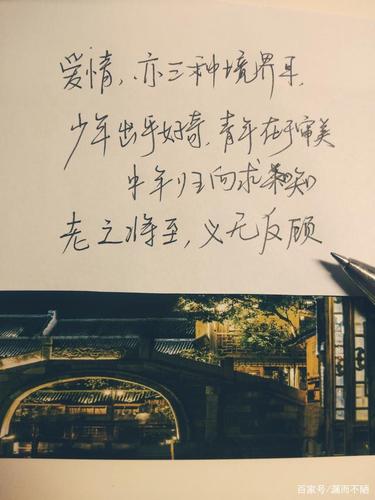 爱情,亦三种境界耳,
少年出乎好奇,青年在于审美
中年归向求知
老之将至,义无反顾
百家号/漏而不陋